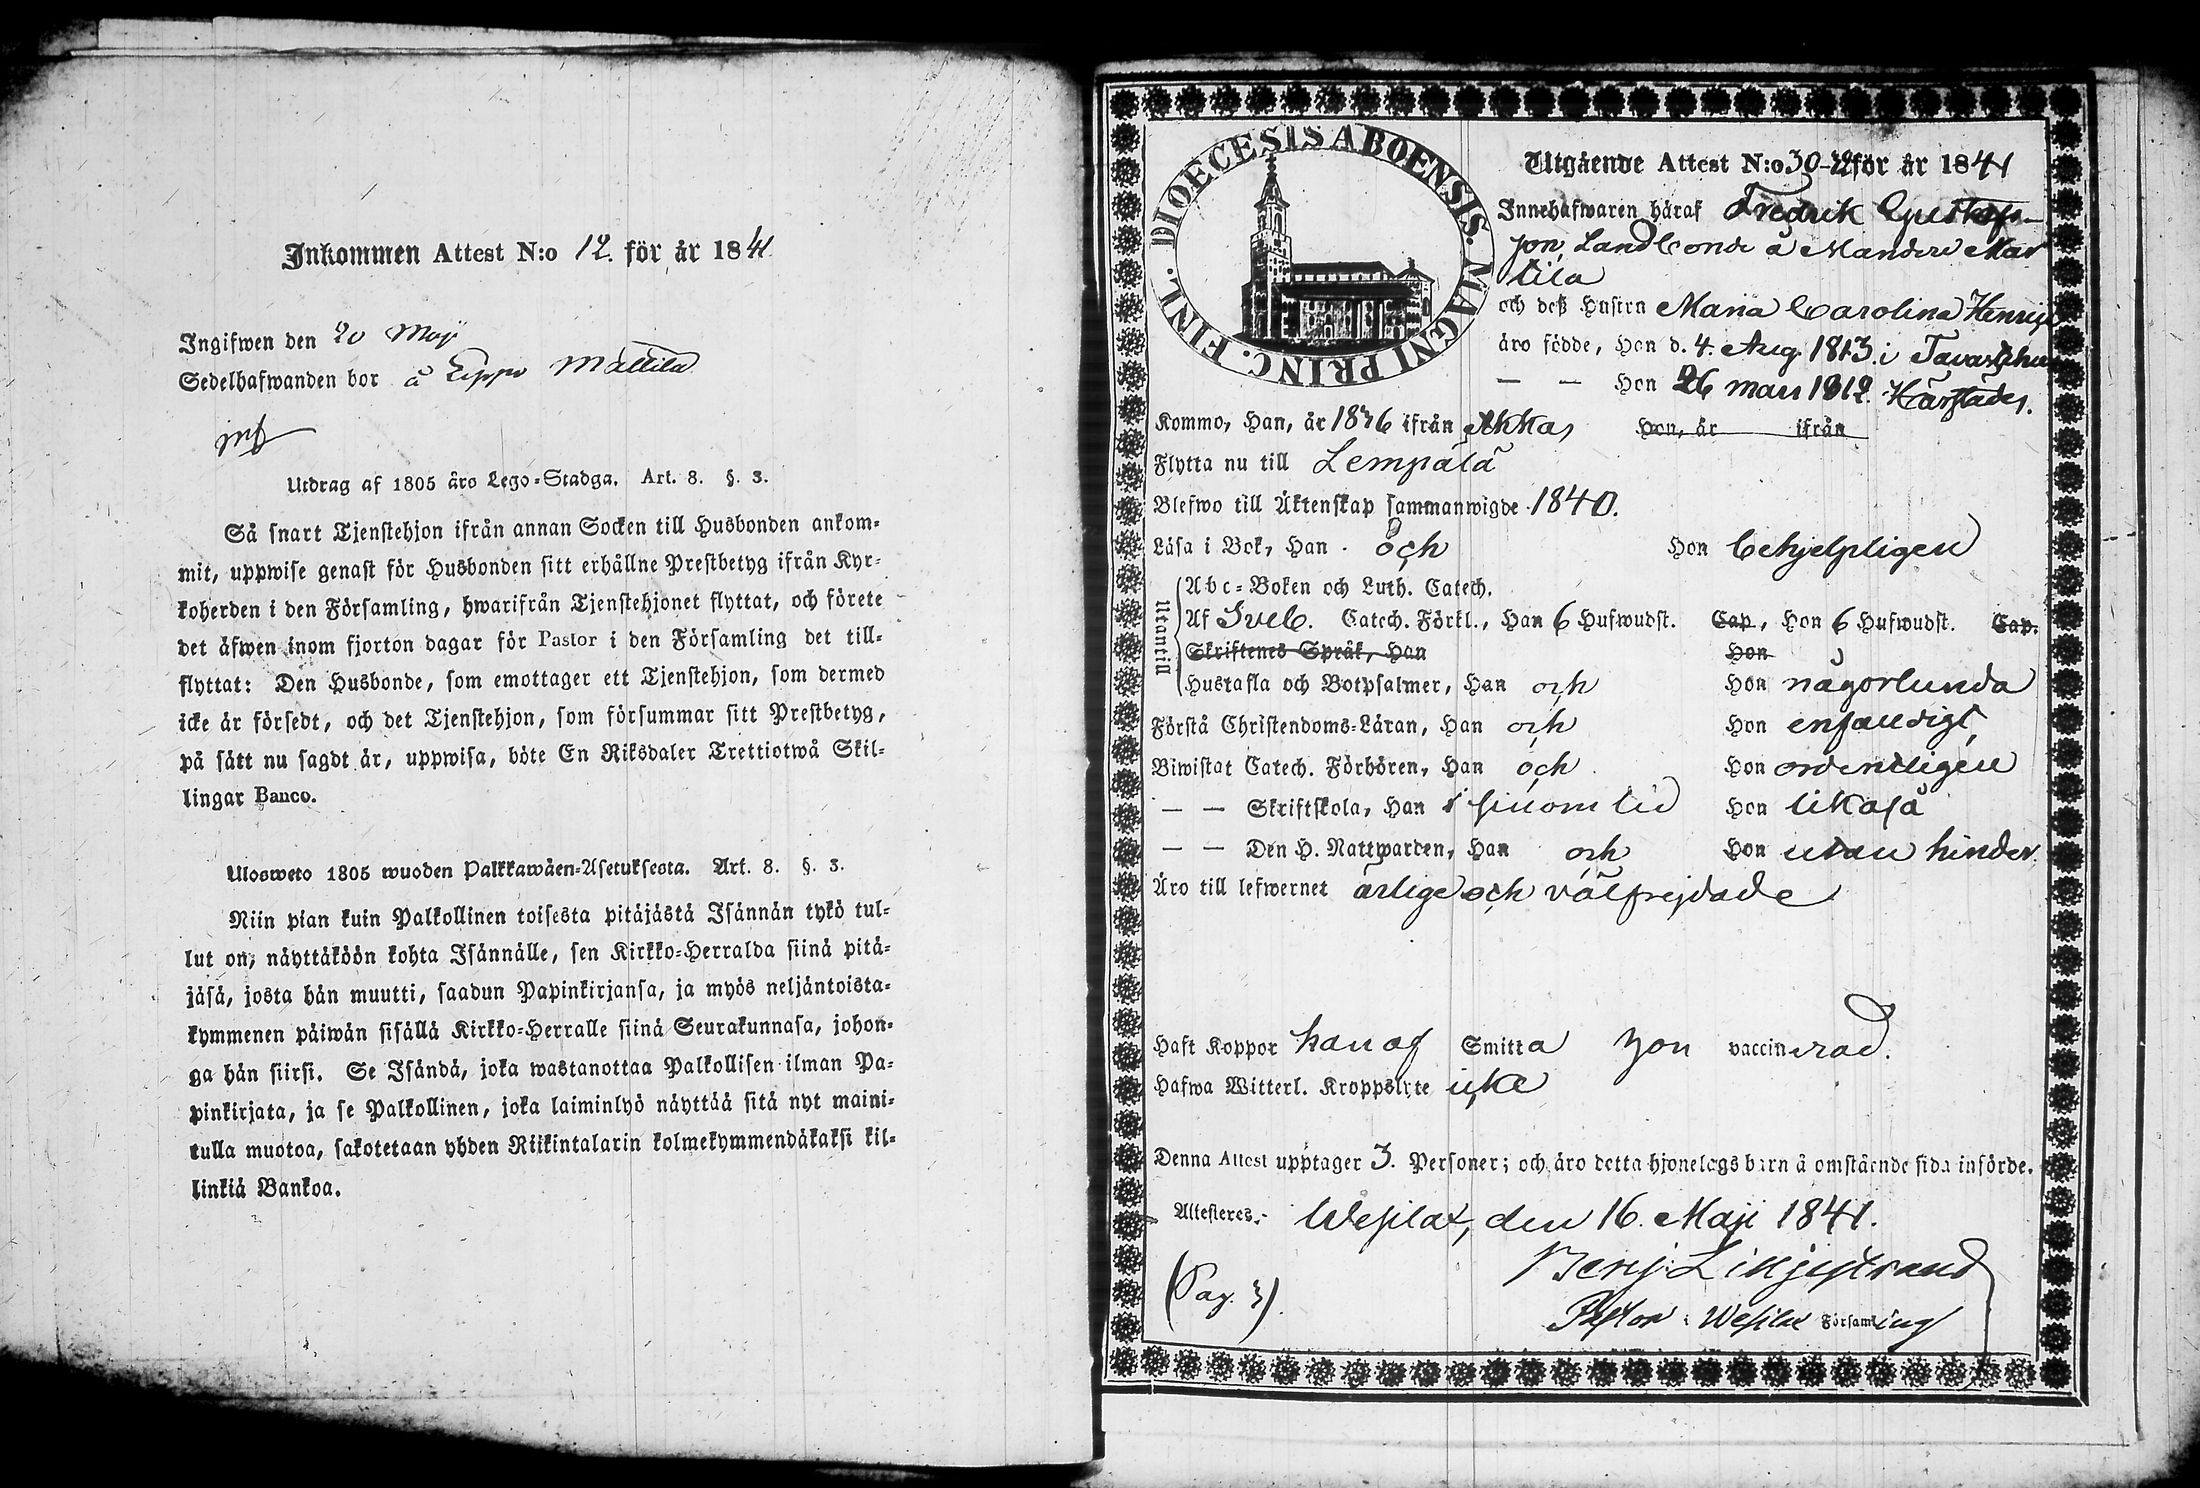 Inkommen Attest N:o 12. för år 1841
Ingifwen den 20 Maji
Sedelhafwanden bor å Lippo Mattila
Utdrag af 1805 års Lego-Stadga. Art. 8. §. 3.
Så snart Tjenstehjon ifrån annan Socken till Husbonden ankom-
mit, uppwise genast för Husbonden sitt erhållne Prestbetyg ifrån Kyr-
koherden i den Församling, hwarifrån Tjenstehjonet flyttat, och förete
det äfwen inom fjorton dagar för Pastor i den Församling det till-
flyttat: Den Husbonde, som emottager ett Tjenstehjon, som dermed
icke är försedt, och det Tjenstehjon, som försummar sitt Prestbetyg,
på sätt nu sagdt är, uppwisa, böte En Riksdaler Trettiotwå Skil-
lingar Banco.
Ulosweto 1805 wuoden Palkkawäen-Asetuksesta. Art. 8. §. 3.
Niin pian kuin Palkollinen toisesta pitäjästä Isännän tykö tul-
lut on, näyttäköön kohta Isännälle, sen Kirkko-Herralda siinä pitä-
jäsä, josta hän muutti, saadun Papinkirjansa, ja myös neljäntoista-
kymmenen päiwän sisällä Kirkko-Herralle siinä Seurakunnasa, johon-
ga hän siirsi. Se Isändä, joka wastanottaa Palkollisen ilman Pa-
pinkirjata, ja se Palkollinen, joka laiminlyö näyttää sitä nyt maini-
tulla muotoa, sakotetaan yhden Riikintalarin kolmekymmendäkaksi kil-
linkiä Bankoa.
DIOECESIS ABOENSIS. MAGNI PRINC. FINL.
Utgående Attest N:o 30-32 för år 1841
Innehafwaren häraf Fredrik Gustafs-
son, Landbonde å Mandere Mar
tila
och deß Hustru Maria Carolina Henriksd
äro födde, Han d. 4. Aug. 1813. i Tavastehus
— — Hon 26 mars 1812.
Kommo, Han, år 1836 ifrån Akkas Hon, år ifrån
Flytta nu till Lempälä
Blefwo till Äktenskap sammanwigde 1840.
Läsa i Bok, Han och Hon behjelpligen
Utantill
Abc-Boken och Luth. Catech.
Af Sveb. Catech. Förkl., Han 6 Hufwudst. Cap, Hon 6 Hufwudst. Cap.
Skriftenes Språk, Han Hon
Hustafla och Botpsalmer, Han och Hon någorlunda
Förstå Christendoms-Läran, Han och Hon enfaldigt
Biwistat Catech. Förhören, Han och Hon ordentligen
— — Skriftskola, Han i sinom tid Hon likaså
— — Den H. Nattwarden, Han och Hon utan hinder.
Äro till lefwernet ärlige och välfrejdade
Haft Koppor han af Smitta hon vaccinerad.
Hafwa Witterl. Kroppslyte icke
Denna Attest upptager 3. Personer; och äro detta hjonelags barn å omstående sida införde.
Attesteres. Wesilax, den 16. Maji 1841.
Benj. Liljestrand
(Pag. 3).
Pastor i Wesilax Församling